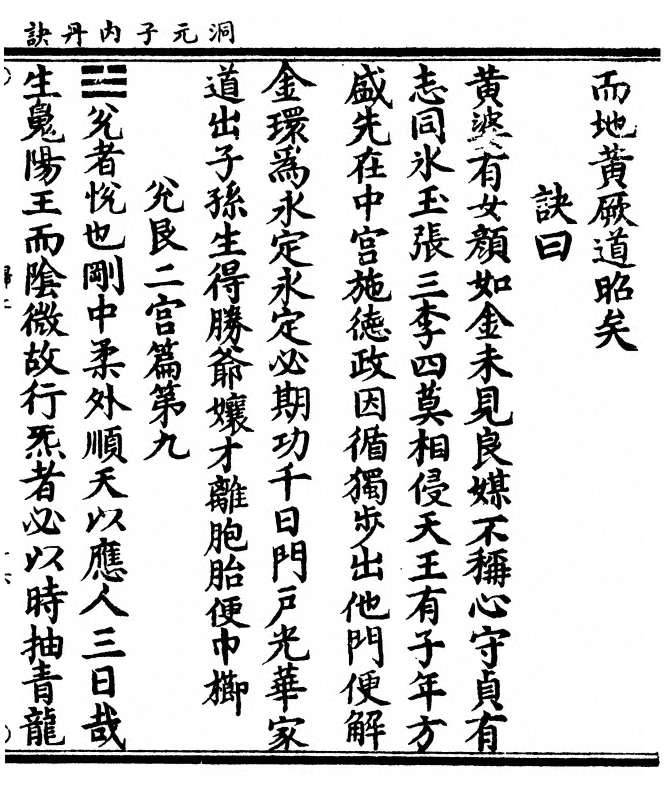 洞元子内丹訣
而地黃厥道昭矣
訣曰
黃婆有女顏如金未見良媒不稱心守貞有
志同氷玉張三李四莫相侵天王有子年方
盛先在中宮施徳政因循獨步出他門便解
金環爲永定永定必期功千日門戸光華家
道出子孫生得勝爺孃才離胞胎便巾櫛
兊艮二宮篇第九
☱兊者悅也剛中柔外順天以應人三日哉
生䰟陽王而隂微故行炁者必以時抽青龍